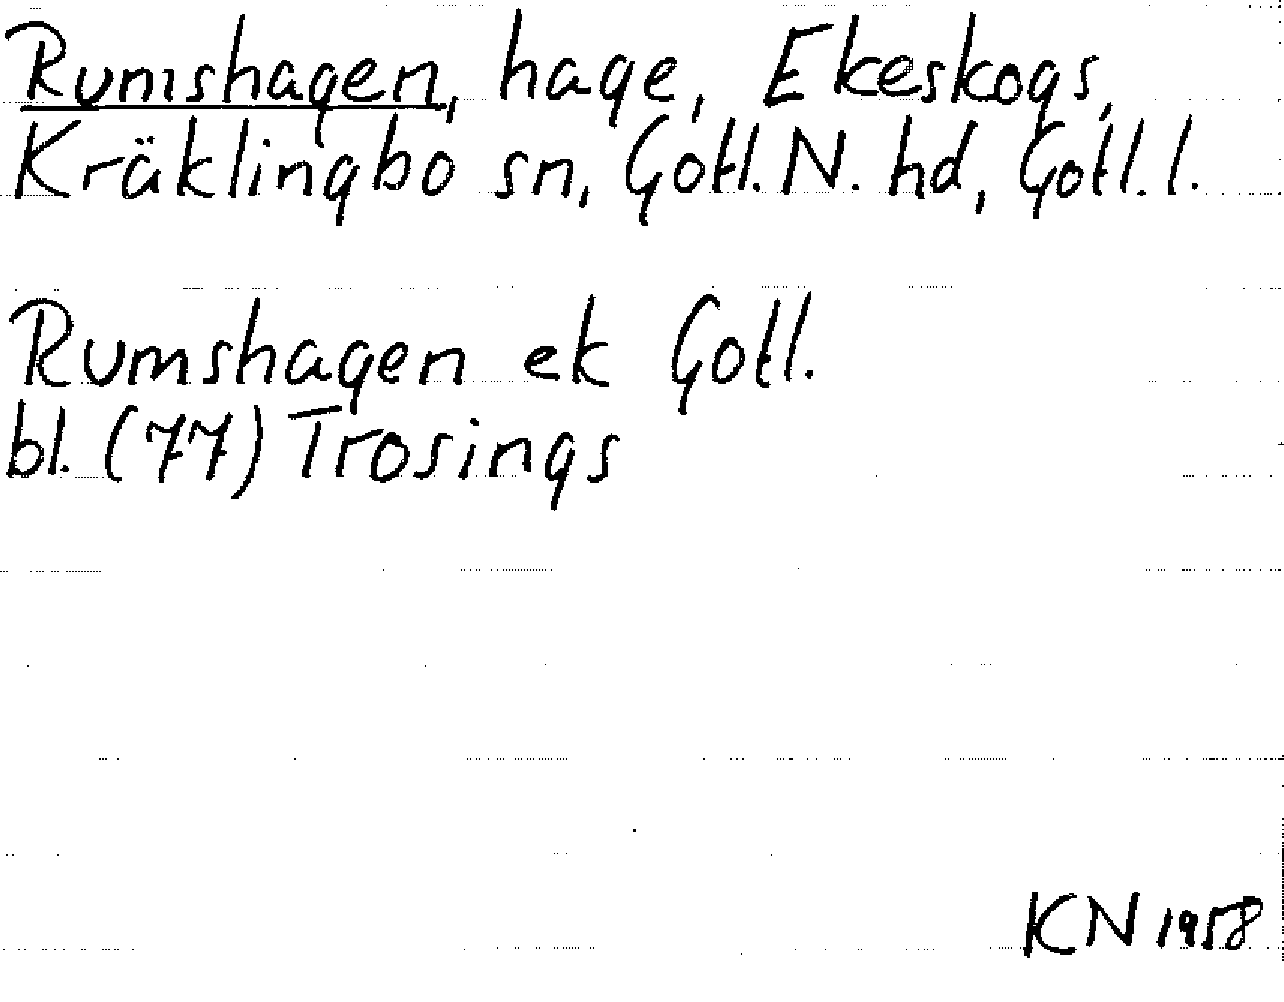 Rumshagen, hage, Ekeskogs,
Kräklingbo sn, Gotl. N. hd, Gotl. l.
Rumshagen ek Gotl.
bl. (77) Trosings
KN 1958